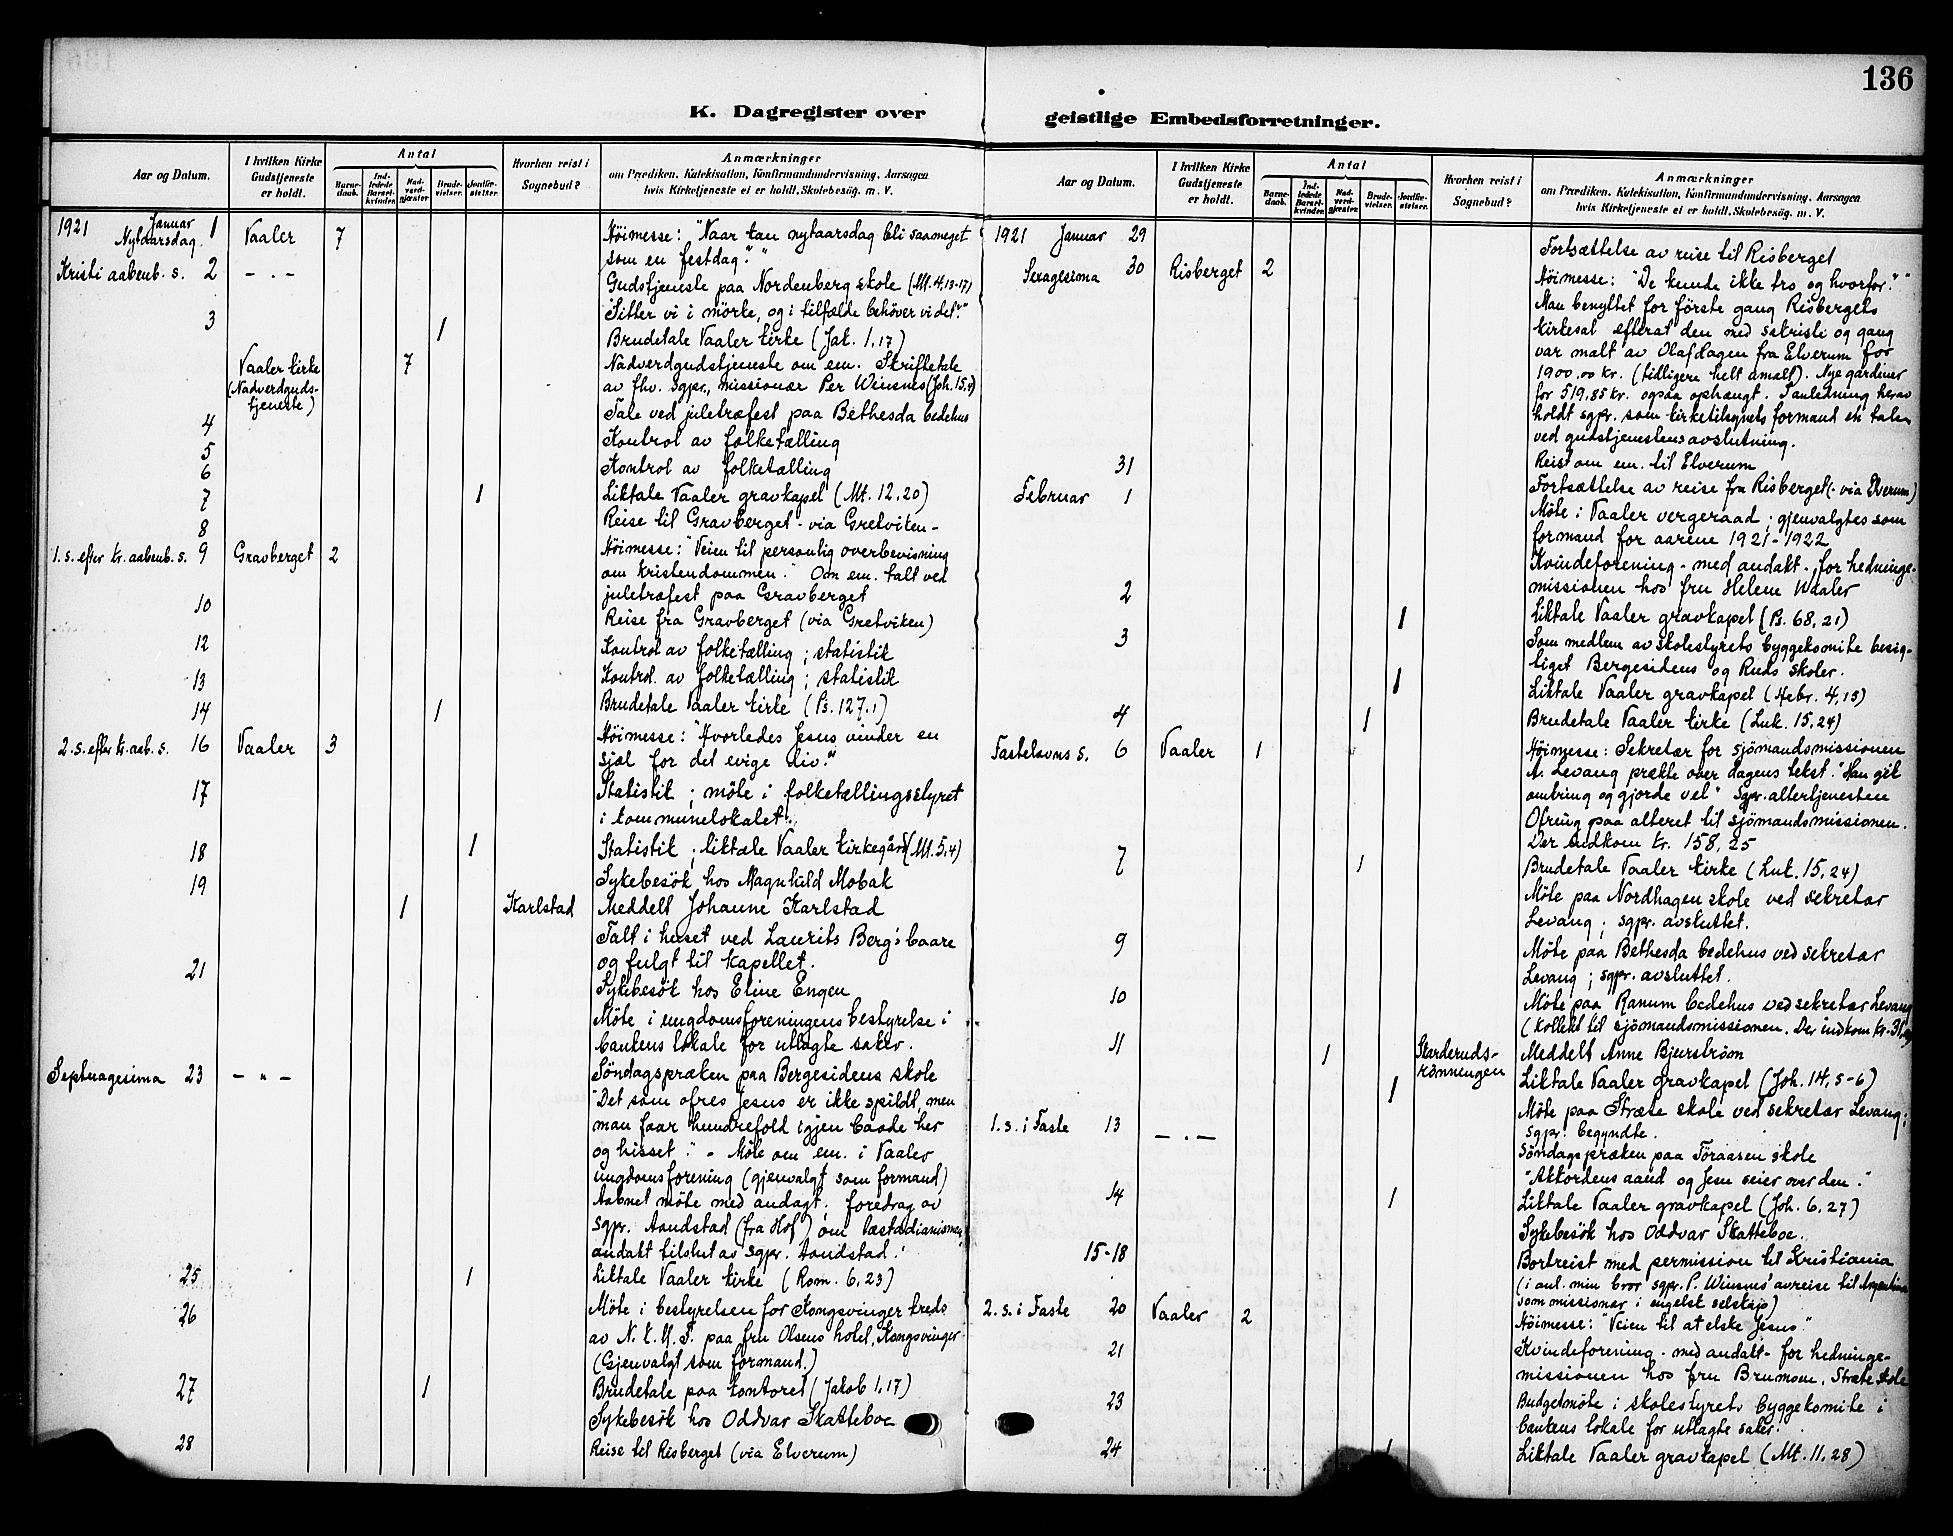 136
K. Dagregister over geistlige Embedsforretninger.
Aar og Datum.
I hvilken Kirke Gudstjeneste er holdt.
Antal
Barnedaab.
Indledede Barselkvinder.
Nadverdgjæster.
Brudevielser.
Jordfæstelser.
Hvorhen reist i Sognebud?
Anmærkninger
om Prædiken, Katekisation, Konfirmandundervisning, Aarsagen
hvis Kirketjeneste ei er holdt, Skolebesøg. m. V.
1921 Januar 1 Nytaarsdag. Vaaler 7 Høimesse: "Naar kan nytaarsdag bli saameget
som en festdag?"
Kristi aabenb. s. 2 — . — Gudstjeneste paa Nordenberg skole (Mt. 4,13-17)
"Sitter vi i mörke, og i tilfælde behöver vi det?"
3 1 Brudetale Vaaler kirke (Jak. 1,17)
Vaaler kirke 7 Nadverdgudstjeneste om em. Skriftetale
(Nadverdguds- av fhv. sgpr., missionær Per Winsnes (Joh. 15,4)
tjeneste)
4 Tale ved juletræfest paa Bethesda bedehus
5 Kontrol av folketælling
6 Kontrol av folketælling
7 1 Liktale Vaaler gravkapel (Mt. 12,20)
8 Reise til Gravberget - via Gretviken -
1. s. efter kr. aabenb. s. 9 Gravberget 2 Høimesse: "Veien til personlig overbevisning
om kristendommen." Om em. talt ved
juletræfest paa Gravberget
10 Reise fra Gravberget (via Gretviken)
12 Kontrol av folketælling; statistik
13 Kontrol av folketælling; statistik
14 1 Brudetale Vaaler kirke (Ps. 127,1)
2. s. efter kr. aab. s. 16 Vaaler 3 Høimesse: "Hvorledes Jesus vinder en
sjæl for det evige liv."
17 Statistik; möte i folketællingsstyret
i kommunelokalet.
18 1 Statistik; liktale Vaaler kirkegård (Mt. 5,4)
19 Sykebesök hos Magnhild Mobak
1 Karlstad Meddelt Johanne Karlstad
Talt i huset ved Laurits Berg's baare
og fulgt til kapellet.
21 Sykebesök hos Eline Engen
Möte i ungdomsforeningens bestyrelse i
bankens lokale for utlagte saker.
Septuagesima 23 — " — Söndagspræken paa Bergesidens skole
"Det som ofres Jesus er ikke spildt, men
man faar hundrefold igjen baade her
og hisset." - Möte om em. i Vaaler
ungdomsforening (gjenvalgt som formand)
Aabnet möte med andagt; foredrag av
sgpr. Aandstad (fra Hof) om læstadianismen;
andakt tilslut av sgpr. Aandstad.
25 1 Liktale Vaaler kirke (Rom. 6,23)
26 Möte i bestyrelsen for Kongsvinger kreds
av N.K.U.F. paa fru Olsens hotel, Kongsvinger
(Gjenvalgt som formand.)
27 1 Brudetale paa kontoret (Jakob 1,17)
Sykebesök hos Oddvar Skatteboe
28 Reise til Risberget (via Elverum)
Aar og Datum.
I hvilken Kirke Gudstjeneste er holdt.
Antal
Barnedaab.
Indledede Barselkvinder.
Nadverdgjæster.
Brudevielser.
Jordfæstelser.
Hvorhen reist i Sognebud?
Anmærkninger
om Prædiken, Katekisation, Konfirmandundervisning, Aarsagen
hvis Kirketjeneste ei er holdt, Skolebesøg. m. V.
1921 Januar 29 Fortsættelse av reise til Risberget
Sexagesima 30 Risberget 2 Høimesse: "De kunde ikke tro og hvorfor?"
Man benyttet for förste gang Risbergets
kirkesal efterat den med sakristi og gang
var malt av Olaf Hagen fra Elverum for
1900.00 kr. (tidligere helt umalt). Nye gardiner
for 519,85 kr. ogsaa ophængt. I anledning herav
holdt sgpr. som kirketilsynets formand en tale
ved gudstjenestens avslutning.
31 Reist om em. til Elverum
Februar 1 Fortsættelse av reise fra Risberget (- via Elverum)
Möte i Vaaler vergeraad; gjenvalgtes som
formand for aarene 1921-1922
Kvindeforening - med andakt - for hedninge-
2 missionen hos fru Helene Waaler
1 Liktale Vaaler gravkapel (Ps. 68,21)
3 Som medlem av skolestyrets byggekomite besig-
tiget Bergesidens og Ruds skoler.
1 Liktale Vaaler gravkapel (Hebr. 4,15)
4 1 Brudetale Vaaler kirke (Luk. 15,24)
Fastelavns s. 6 Vaaler 1 Høimesse: Sekretær for sjömandsmissionen
A. Levang prækte over dagens tekst: "Han gik
omkring og gjorde vel" Sgpr. altertjenesten
Ofring paa alteret til sjömandsmissionen.
Der indkom kr. 158,25
7 1 Brudetale Vaaler kirke (Luk. 15,24)
Möte paa Nordhagen skole ved sekretær
Levang; sgpr. avsluttet.
9 Möte paa Bethesda bedehus ved sekretær
Levang; sgpr. avsluttet.
10 Möte paa Ranum bedehus ved sekretær Levang
(kollekt til sjömandsmissionen. Der indkom kr. 31,
11 1 Skarderuds- Meddelt Anne Bjurström
rönningen
1 Liktale Vaaler gravkapel (Joh. 14,5-6)
Möte paa Stræte skole ved sekretær Levang;
sgpr. begyndte.
1. s. i Faste 13 — . — Söndagspræken paa Föraasen skole
"Akkordens aand og Jesu seier over den."
14 1 Liktale Vaaler gravkapel (Joh. 6,27)
Sykebesök hos Oddvar Skatteboe.
15-18 Bortreist med permission til Kristiania
(i anl. min bror sgpr. P. Winsnes' avreise til Argentina
som missionær i engelsk selskap)
2. s. i Faste 20 Vaaler 2 Høimesse: "Veien til at elske Jesus."
21 Kvindeforening - med andakt - for hedninge-
missionen hos fru Brumoen, Stræte skole
23 Budgetmöte i skolestyrets byggekomite i
bankens lokale for utlagte saker.
24 1 Liktale Vaaler gravkapel (Mt. 11,28)